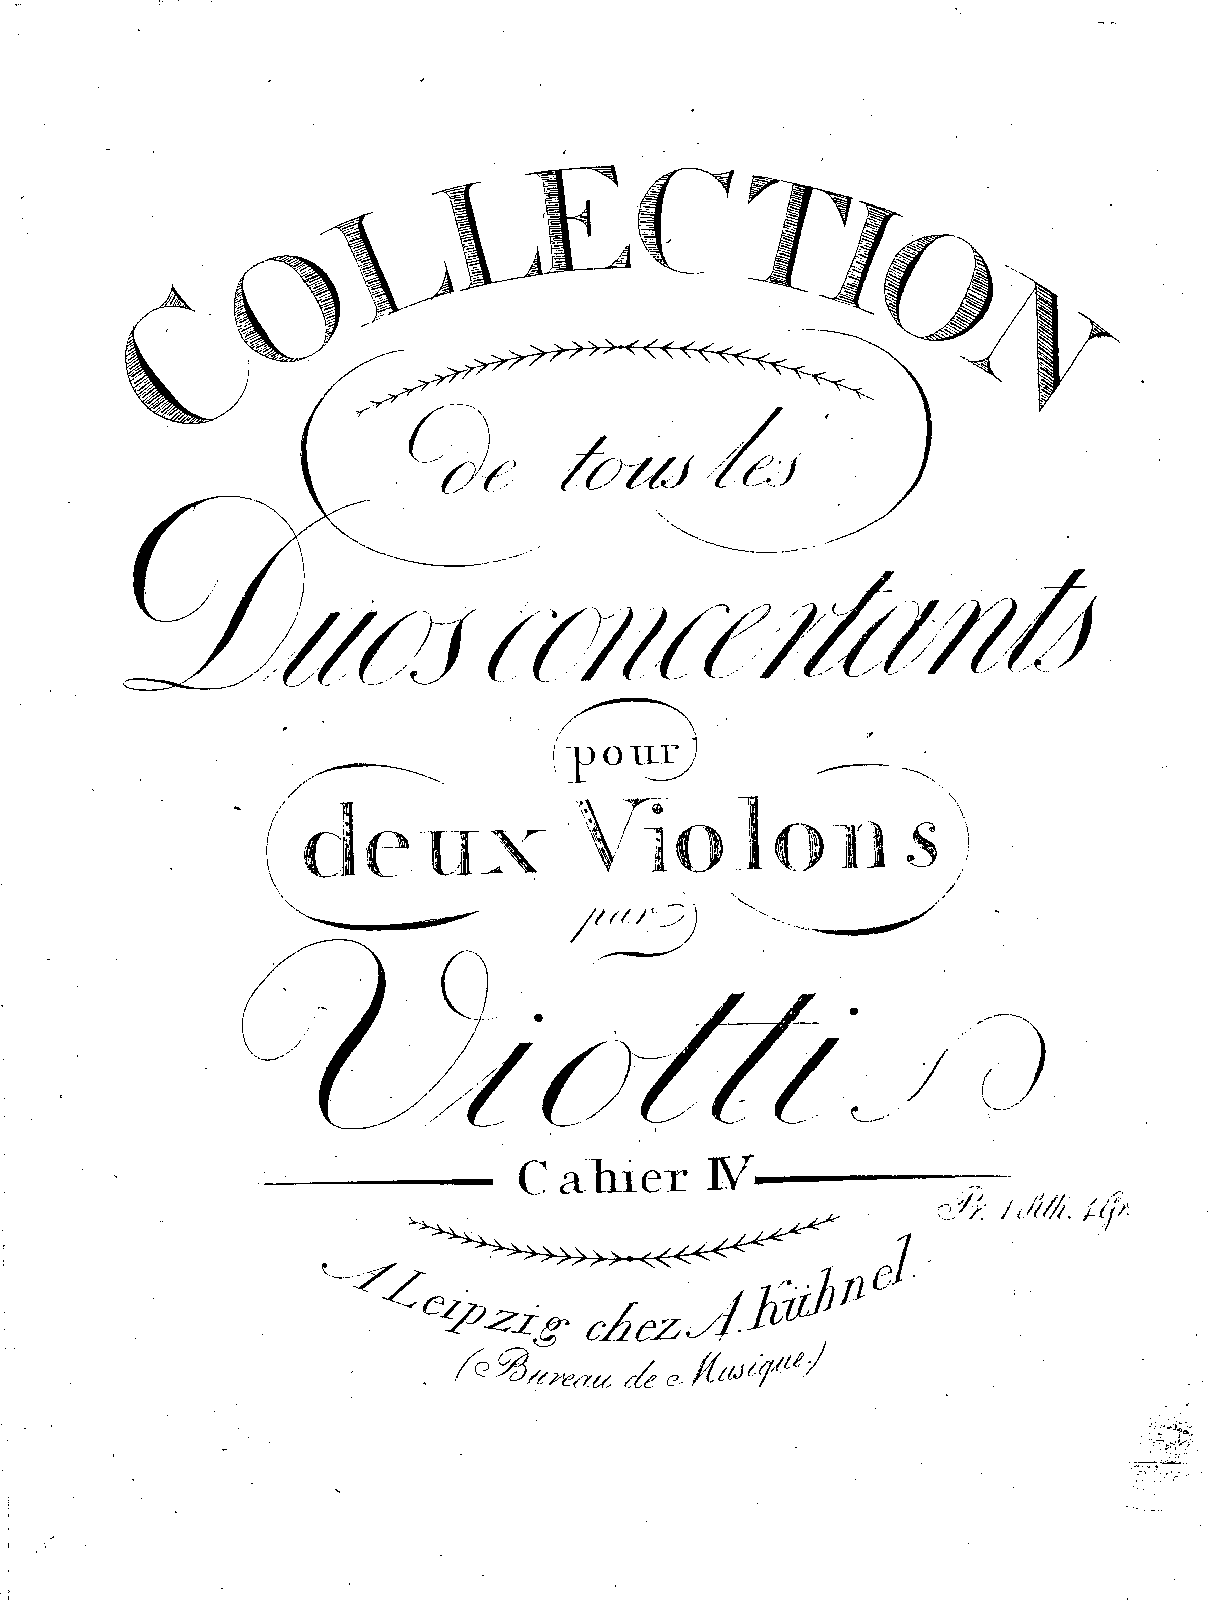 COLLECTION
de tous les
Duos concertants
pour
deux Violons
par
Viotti
Cahier IV
Pr. 1 Rth. 4 Gr.
A Leipzig chez A. Kühnel.
(Bureau de Musique.)